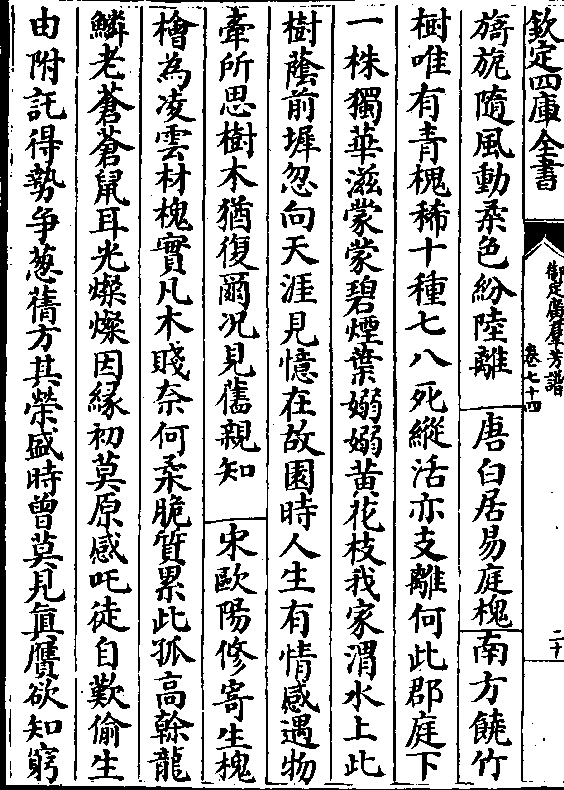 欽定四庫全書
御定廣羣芳譜
卷七十四
二十
旖旎隨風動柔色紛陸離 唐白居易庭槐 南方饒竹
樹唯有青槐稀十種七八死縱活亦支離何此郡庭下
一株獨華滋蒙蒙碧煙葉嫋嫋黄花枝我家渭水上此
樹蔭前墀忽向天涯見憶在故園時人生有情感遇物
牽所思樹木猶復爾况見舊親知 宋歐陽修寄生槐
檜為凌雲材槐實凡木賤奈何柔脆質累此孤高榦龍
鱗老蒼蒼鼠耳光燦燦因縁初莫原感吒徒自歎偷生
由附託得勢争葱蒨方其榮盛時曾莫見真贋欲知窮